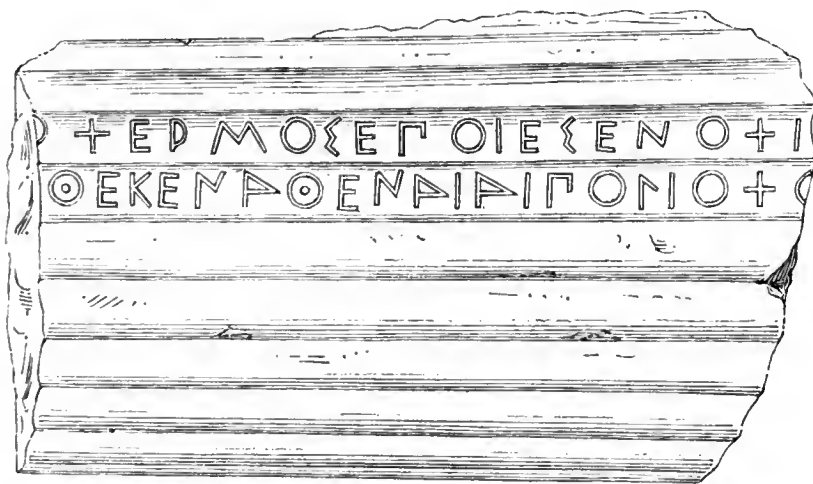 +ΕΡΜΟΣΕΠΟΙΕΣΕΝΟ+Ι
ΘΕΚΕΝΑΘΕΝΑΙΑΙΠΟΛΙΟ+Ο